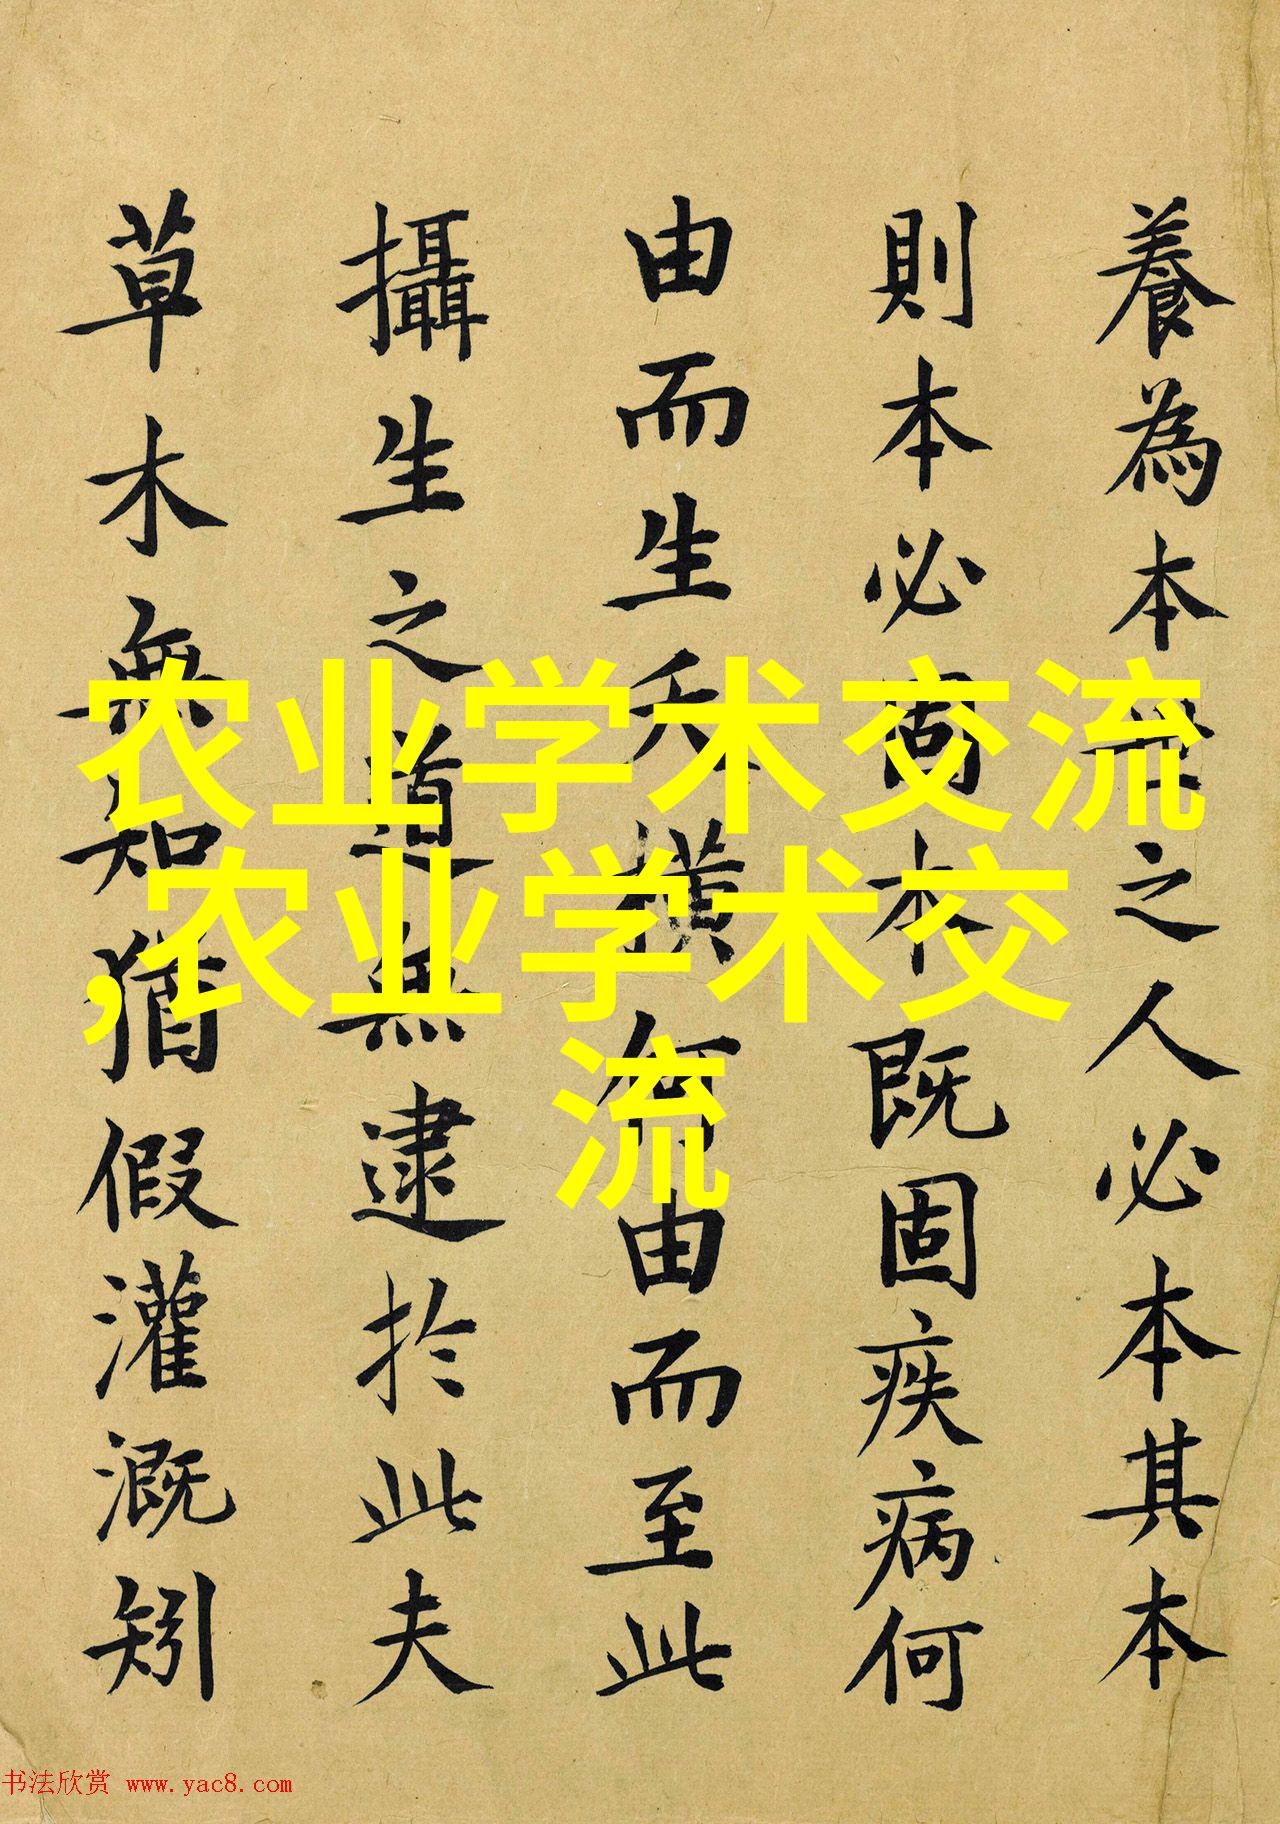 養為本世之人必本其本
則本必固本既固疾病何
由而生夭橫何由而至此
攝生之道無逮於此夫
草木無知猶假灌溉矧
农业学术交流
,农业学术交
流
书法欣赏 www.yac8.com